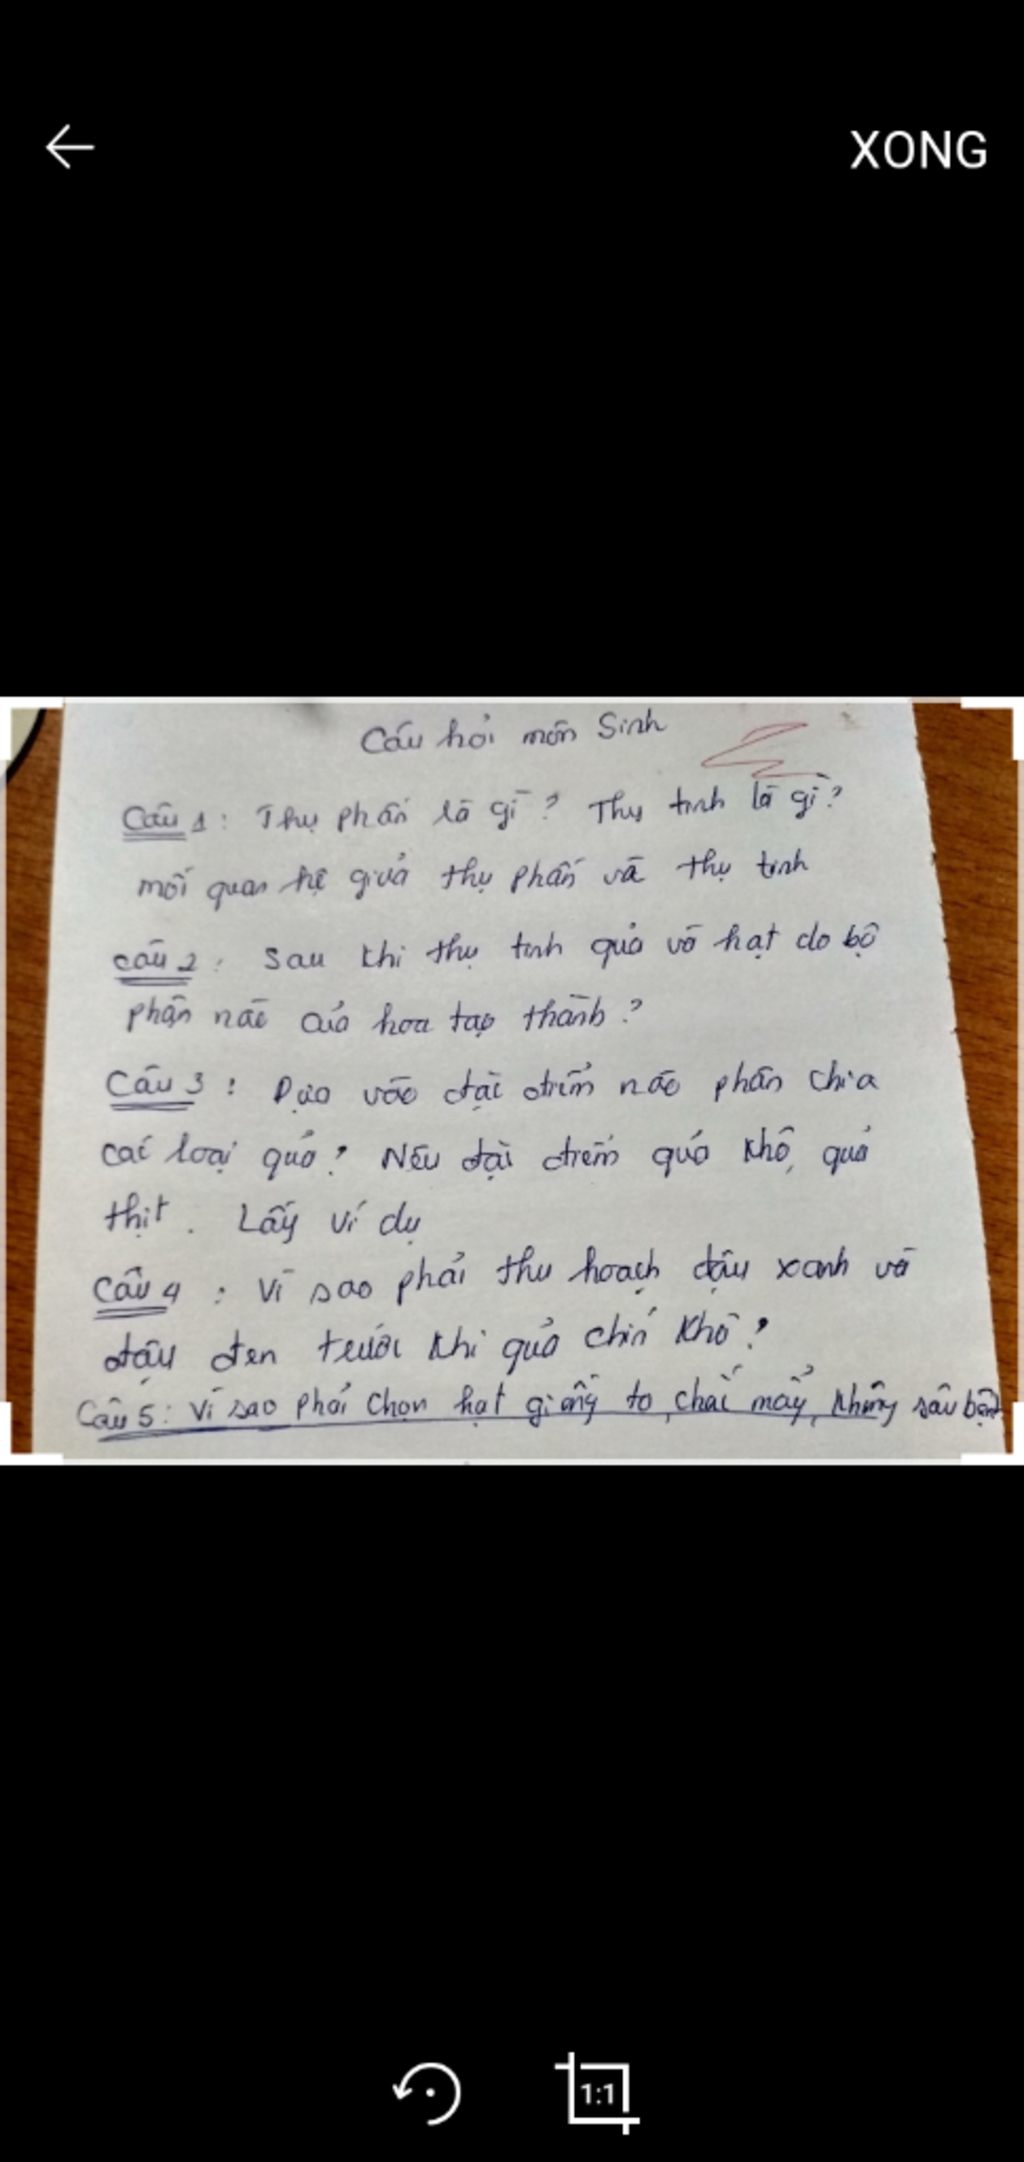 XONG
Câu hỏi môn Sinh
Câu 1: Thụ phấn là gì? Thụ tinh là gì?
mối quan hệ giữa thụ phấn và thụ tinh
câu 2: Sau khi thụ tinh quả và hạt do bộ
phận nào của hoa tạo thành?
Câu 3: Dựa vào đặc điểm nào phân chia
các loại quả? Nêu đặc điểm quả khô, quả
thịt. Lấy ví dụ
Câu 4: Vì sao phải thu hoạch đậu xanh và
đậu đen trước khi quả chín khô?
Câu 5: Vì sao phải chọn hạt giống to, chắc mẩy, không sâu bệnh
1:1